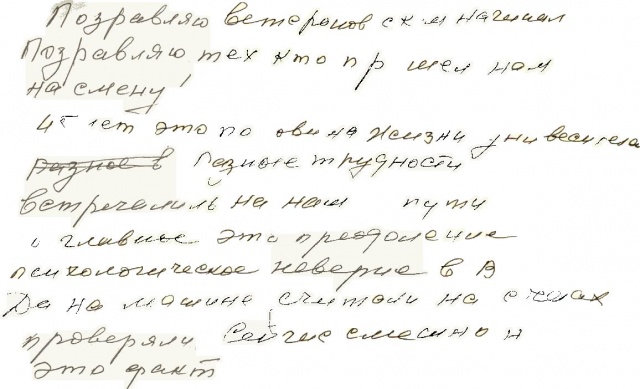 Позравляю ветеронов с к м начинал
Позравляю тех кто пр шел нам
на смену!
45 лет это по овина жизни университета
разное в Разные трудности
встречались на наш пути
и главное это преодоление
психологическое неверие в В
Да на машине считали на счетах
проверяли Сейчас смешно н
это факт